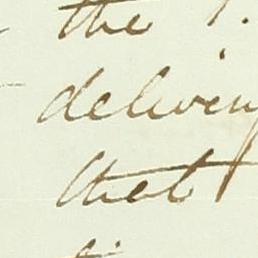 the
delivery
that